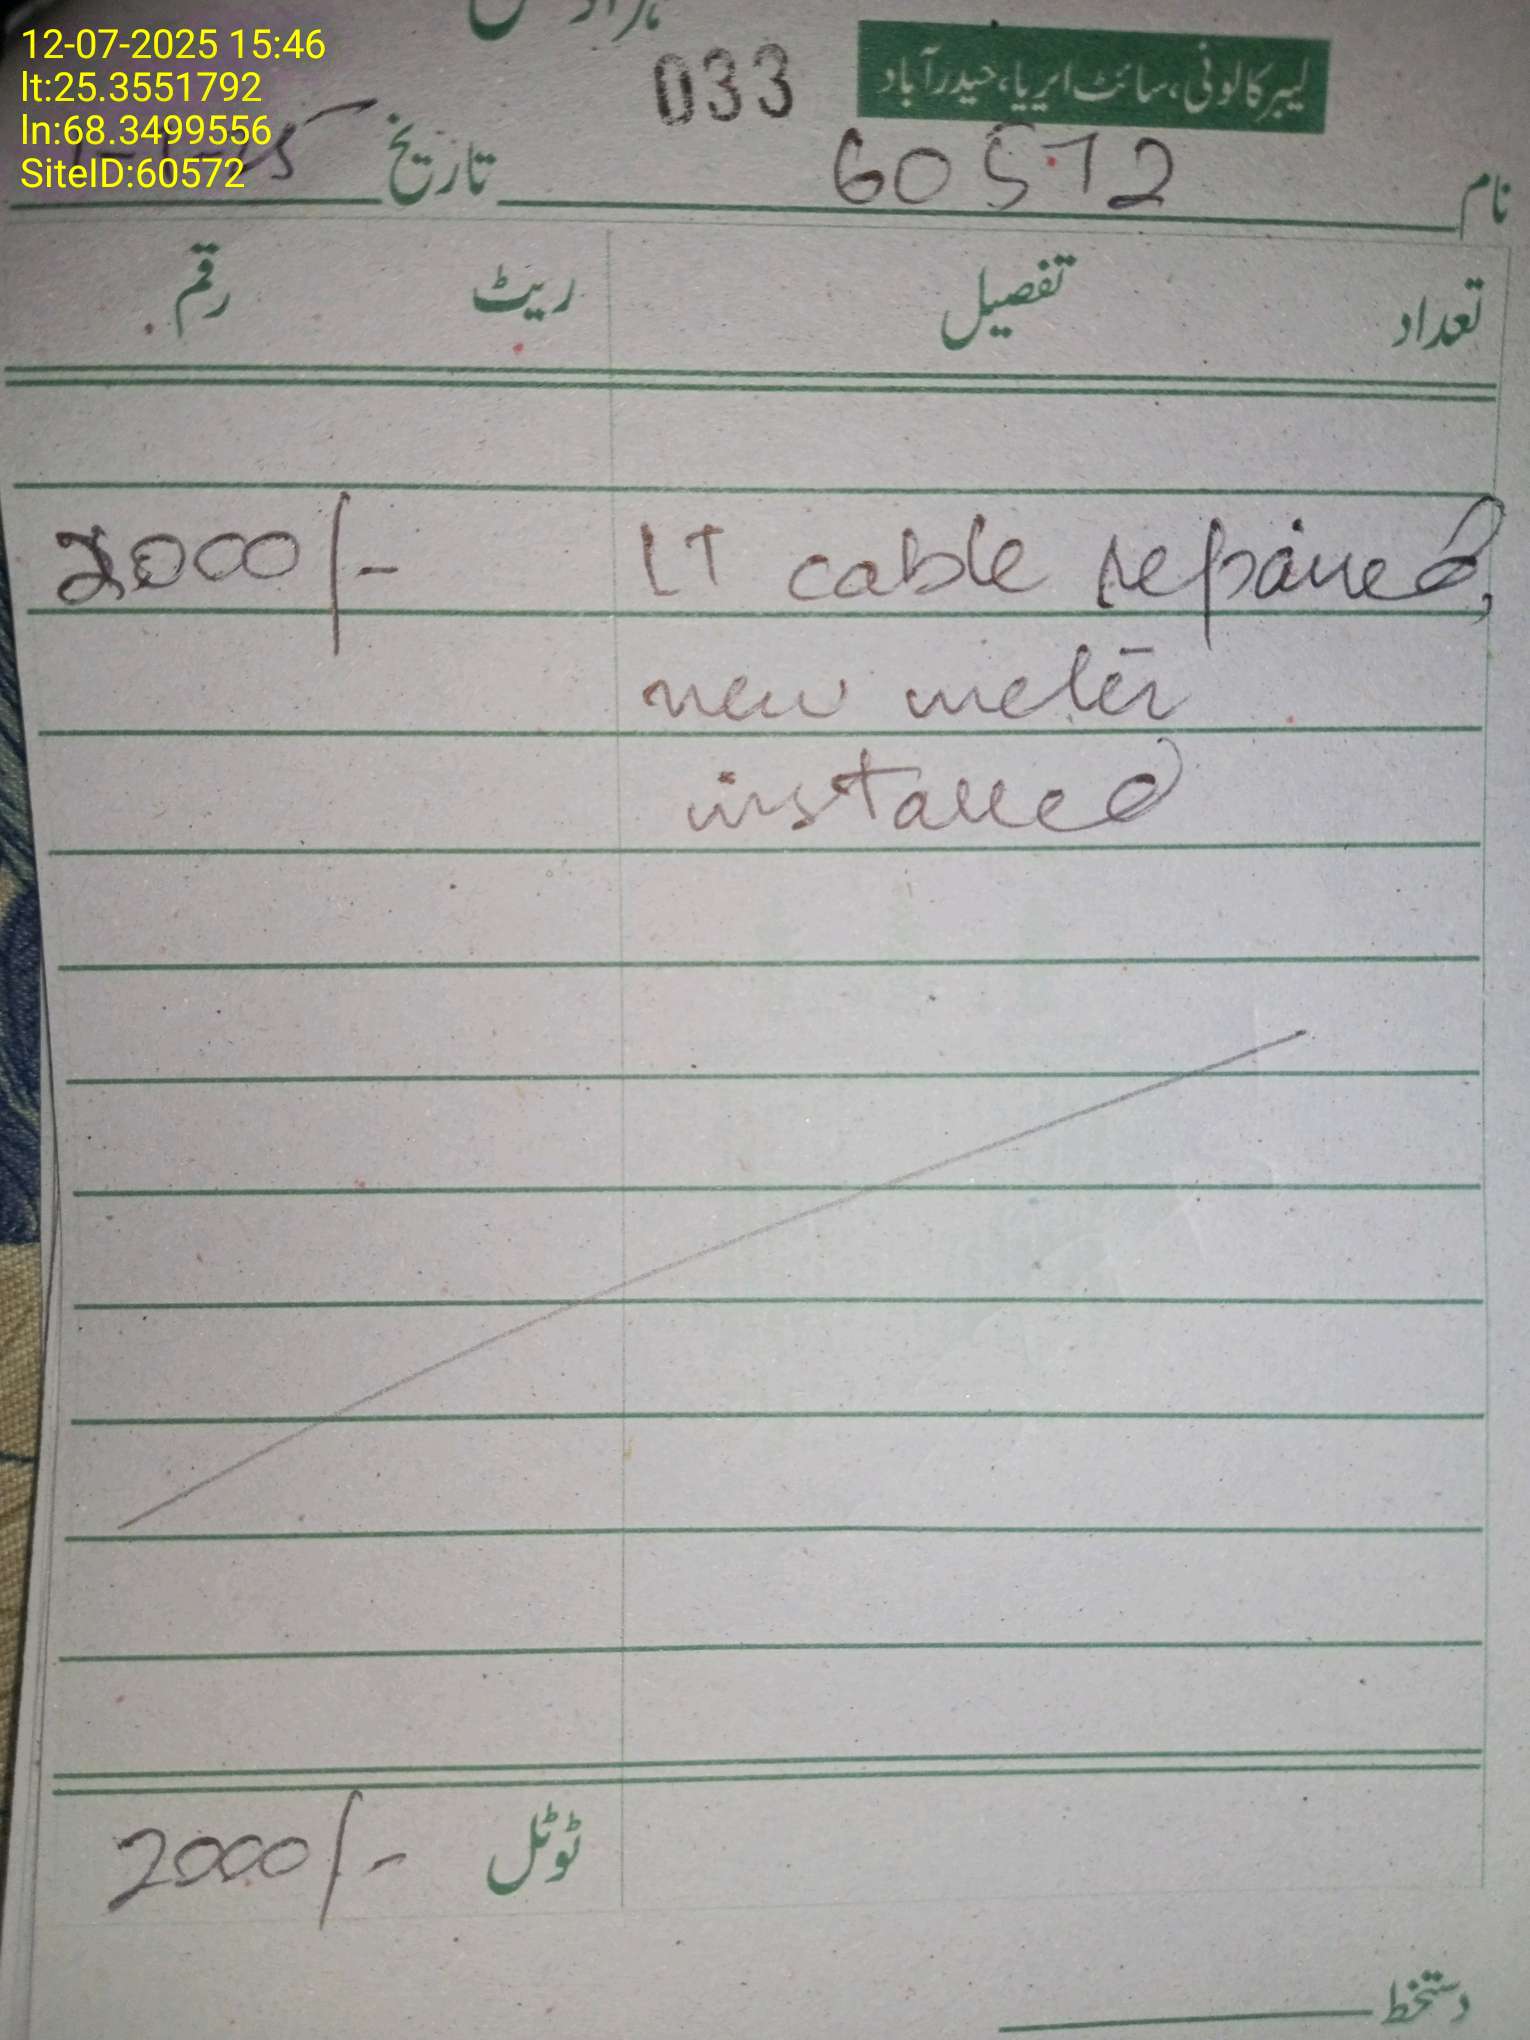 12-07-2025 15:46
lt:25.3551792
ln:68.3499556
SiteID:60572
033
لیبر کالونی، سائٹ ایریا، حیدرآباد
نام 60572 تاریخ
تعداد تفصیل ریٹ رقم
LT cable repaired, 2000/-
new meter
installed
ٹوٹل 2000/-
دستخط